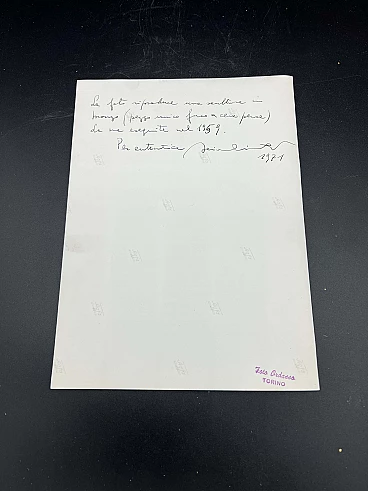 La foto riproduce una scultura in
bronzo (pezzo unico fuso a cera persa)
da me eseguita nel 1959.
Per autentica
1971
Foto Ordassa
TORINO